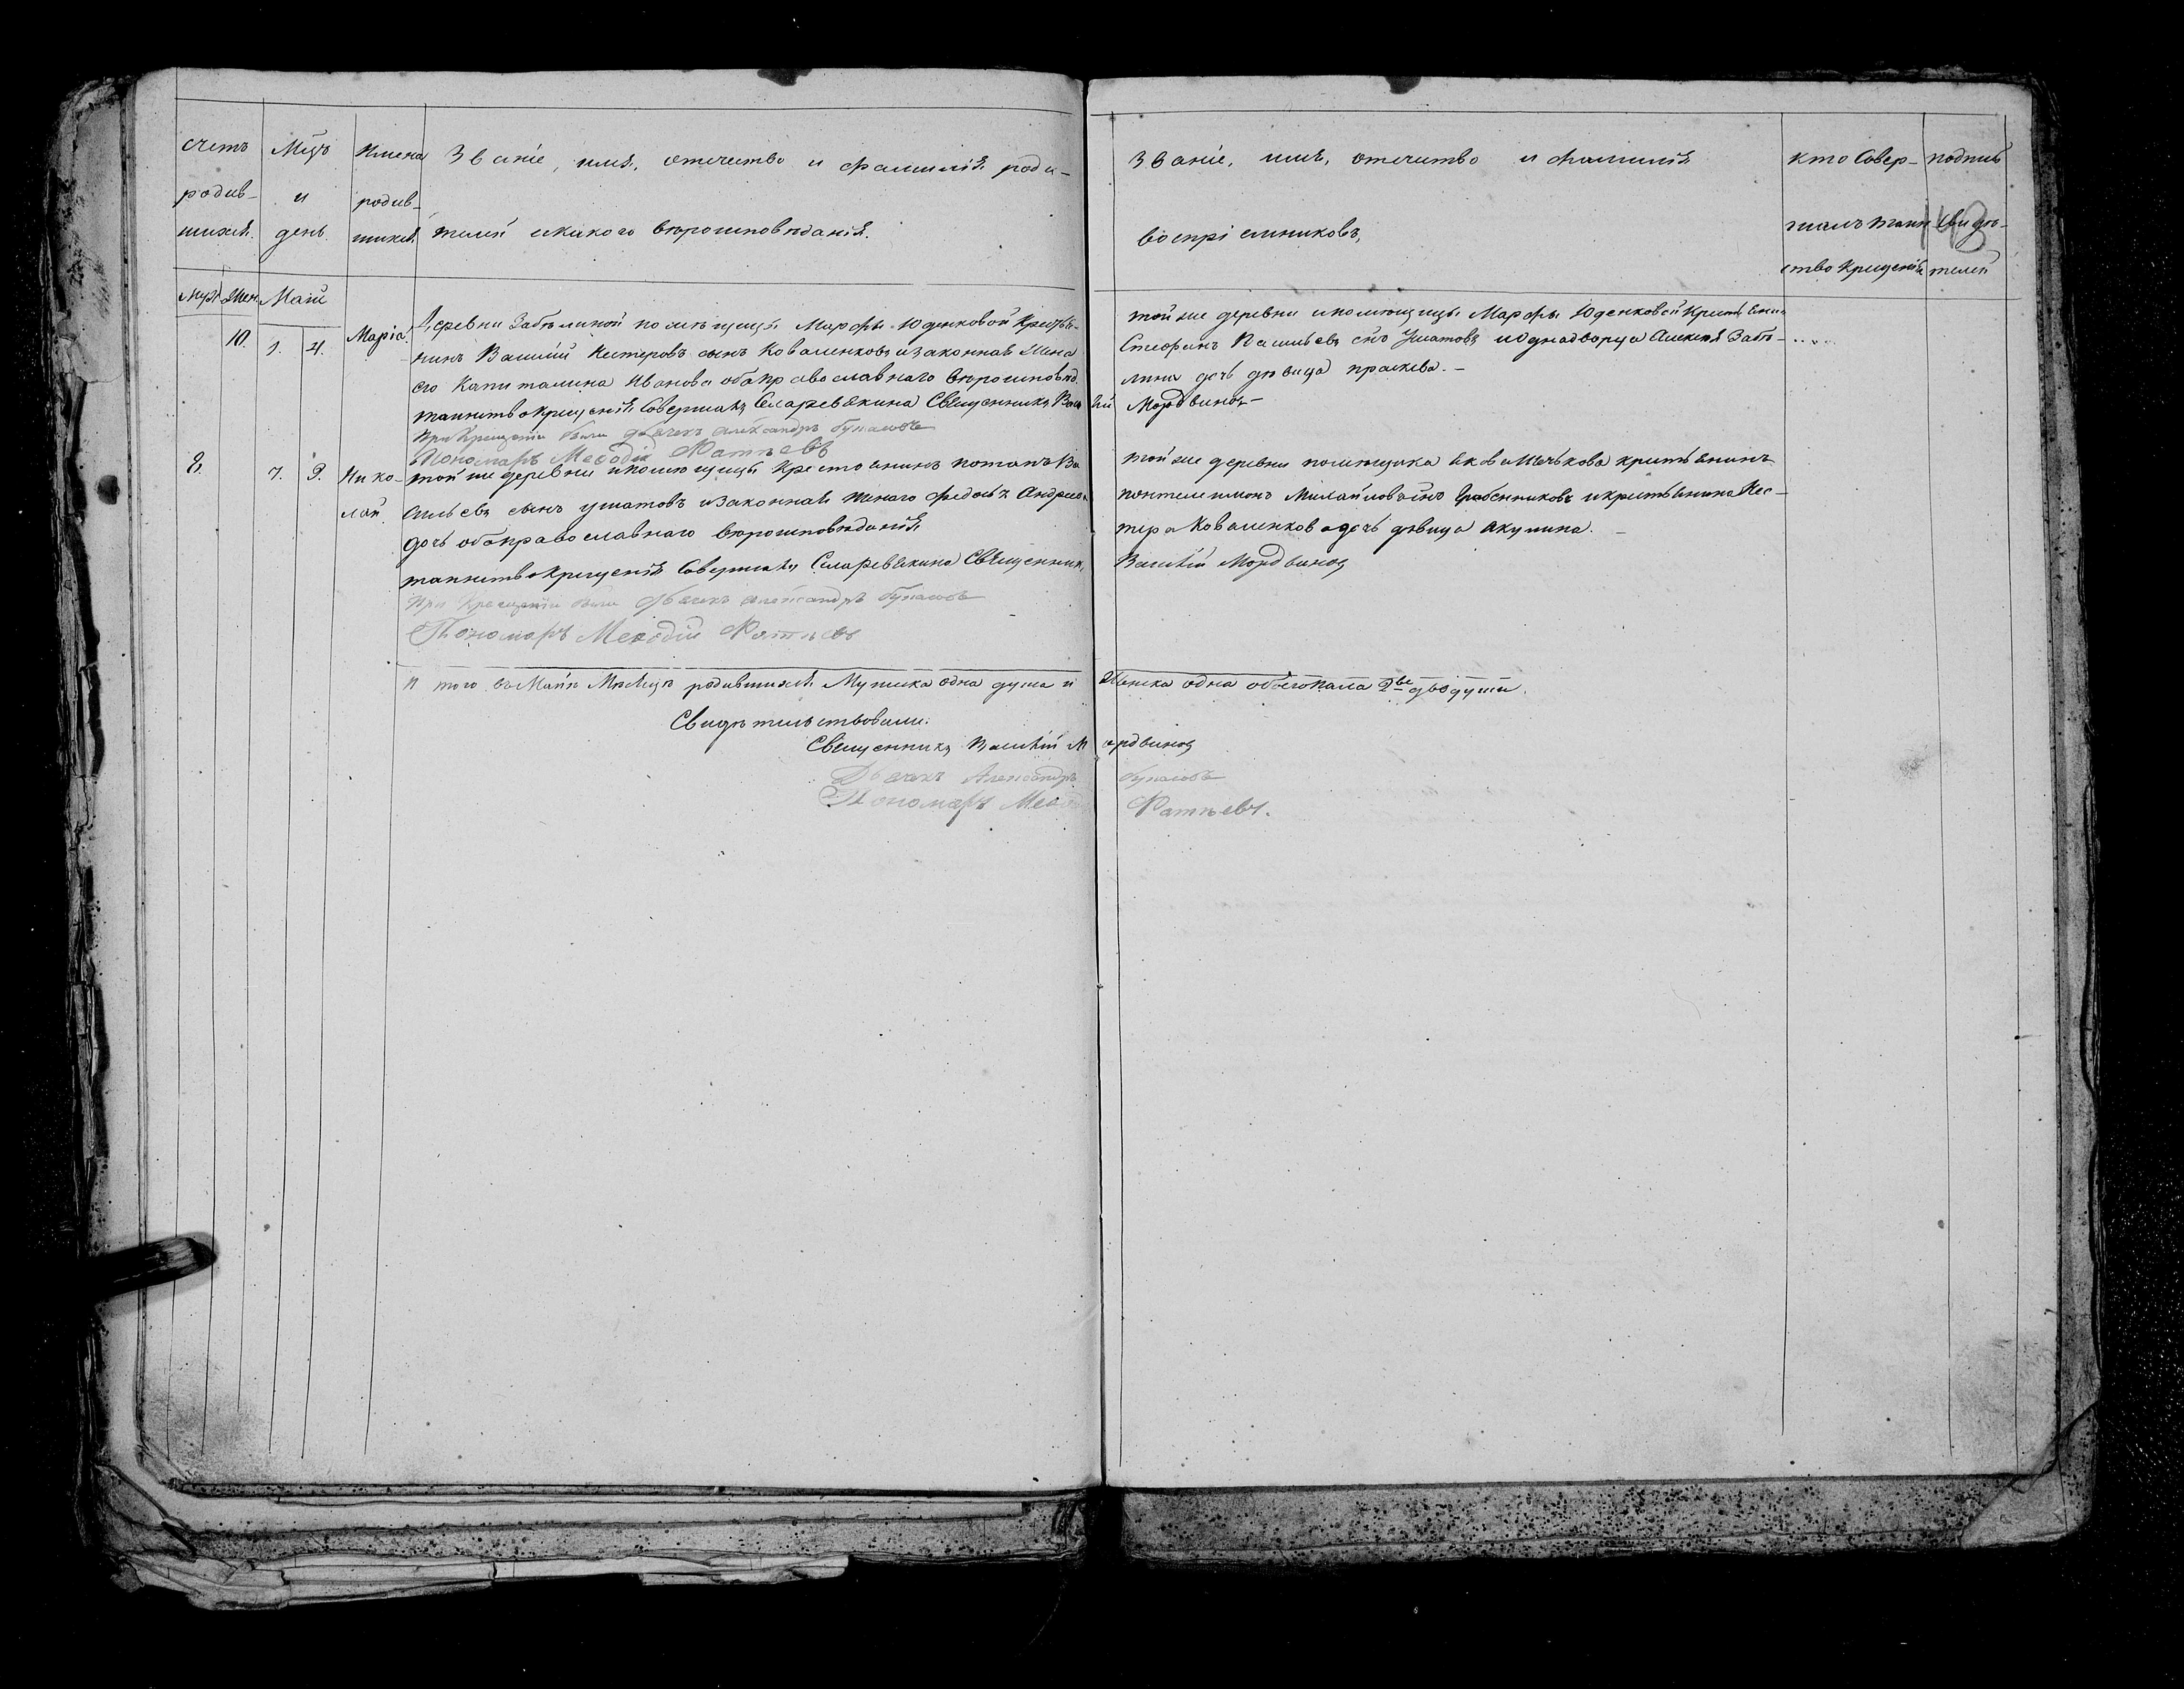 счетъ родив- шихся.
Мѣцъ и день.
Имена родив- шихся.
Званіе, имя, отечество и фамилія роди-
телей икакого вѣроисповѣданія.
Званіе, имя, отечество и фамилія
воспріемниковъ,
кто Совер- шалъ таин ство крещенія
подпись свидѣ- телей
148
Муж Жен Маій
10. 1. 4. Маріа.
Деревни Забѣлиной помѣщицы Марфы Юденковой крестья-
нинъ Василій Нестеровъ сынъ Коваленковъ изаконная Жена
его Капиталина Иванова оба православнаго вѣроисповѣд.
таинство крещенія Совершалъ Священникъ Васи
лій Мордвиновъ
При Крещеніи были дьячекъ Александръ
Пономарь Меѳодій
той же деревни ипомющицы Марфы Юденковой Крестьянинъ
Стефанъ Васильевъ снъ Ушатовъ иоднадворца Алексея Забѣ-
лина дочь дѣвица праскева.
8. 7. 9. Нико-
лай.
той же деревни ипомющицы крестоянинъ потапъ Ва
сильевъ сынъ ушатовъ изаконная Жена его Андреева
дочь оба православнаго вѣроисповѣданія
таинство крещенія Совершалъ Священникъ
Василій Мордвиновъ
При Крещеніи были дьячекъ Александръ
Пономарь Меѳодій
той же деревни помющика крестьянинъ
понтелеимонъ Михайловъ снъ икрестьянина Нес-
тера Коваленкова дочь дѣвица акулина.
И того въ Маіи Мѣсяцѣ родившихся Мужеска одна душа и Женска одна обоегопала 2ве двѣ души.
Свидѣтельствовали:
Священникъ Василій Мордвиновъ
Дьячекъ Александръ
Пономарь Меѳод